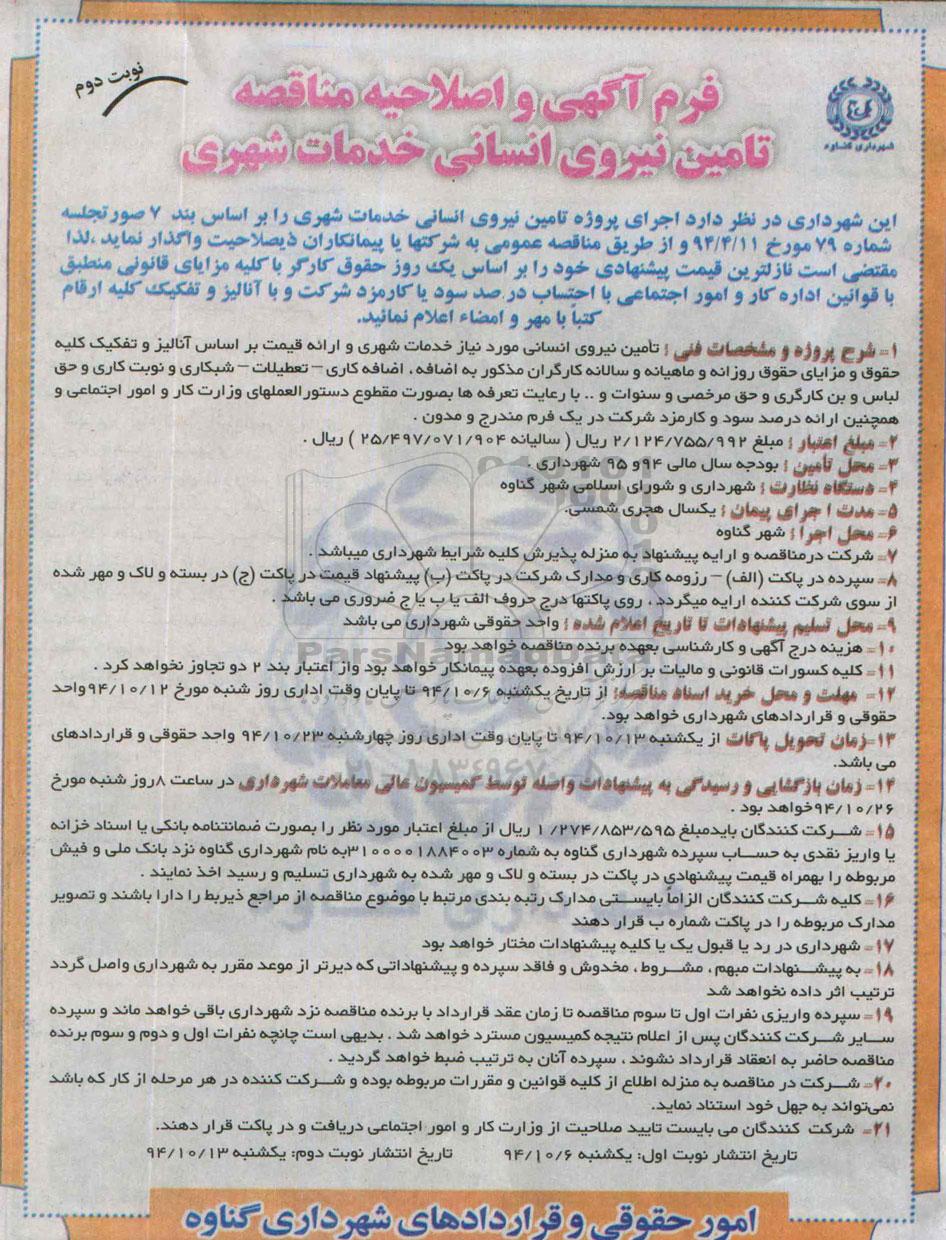 نوبت دوم
فرم آگهی و اصلاحیه مناقصه
تامین نیروی انسانی خدمات شهری
شهرداری گناوه
این شهرداری در نظر دارد اجرای پروژه تامین نیروی انسانی خدمات شهری را بر اساس بند ۷ صورتجلسه
شماره ۷۹ مورخ ۹۴/۴/۱۱ و از طریق مناقصه عمومی به شرکتها یا پیمانکاران ذیصلاحیت واگذار نماید ،لذا
مقتضی است نازلترین قیمت پیشنهادی خود را بر اساس یک روز حقوق کارگر با کلیه مزایای قانونی منطبق
با قوانین اداره کار و امور اجتماعی با احتساب در صد سود یا کارمزد شرکت و با آنالیز و تفکیک کلیه ارقام
کتبا با مهر و امضاء اعلام نمائید.
۱- شرح پروژه و مشخصات فنی : تأمین نیروی انسانی مورد نیاز خدمات شهری و ارائه قیمت بر اساس آنالیز و تفکیک کلیه
حقوق و مزایای حقوق روزانه و ماهیانه و سالانه کارگران مذکور به اضافه ، اضافه کاری – تعطیلات – شبکاری و نوبت کاری و حق
لباس و بن کارگری و حق مرخصی و سنوات و .. با رعایت تعرفه ها بصورت مقطوع دستورالعملهای وزارت کار و امور اجتماعی و
همچنین ارائه درصد سود و کارمزد شرکت در یک فرم مندرج و مدون .
۲- مبلغ اعتبار : مبلغ ۲/۱۲۴/۷۵۵/۹۹۲ ریال ( سالیانه ۲۵/۴۹۷/۰۷۱/۹۰۴ ) ریال .
۳- محل تأمین : بودجه سال مالی ۹۴و ۹۵ شهرداری .
۴- دستگاه نظارت : شهرداری و شورای اسلامی شهر گناوه
۵- مدت ا جرای پیمان : یکسال هجری شمسی.
۶- محل اجرا : شهر گناوه
۷- شرکت درمناقصه و ارایه پیشنهاد به منزله پذیرش کلیه شرایط شهرداری میباشد .
۸- سپرده در پاکت (الف) – رزومه کاری و مدارک شرکت در پاکت (ب) پیشنهاد قیمت در پاکت (ج) در بسته و لاک و مهر شده
از سوی شرکت کننده ارایه میگردد ، روی پاکتها درج حروف الف یا ب یا ج ضروری می باشد .
۹- محل تسلیم پیشنهادات تا تاریخ اعلام شده : واحد حقوقی شهرداری می باشد
۱۰- هزینه درج آگهی و کارشناسی بعهده برنده مناقصه خواهد بود
۱۱- کلیه کسورات قانونی و مالیات بر ارزش افزوده بعهده پیمانکار خواهد بود واز اعتبار بند ۲ دو تجاوز نخواهد کرد .
۱۲- مهلت و محل خرید اسناد مناقصه: از تاریخ یکشنبه ۹۴/۱۰/۶ تا پایان وقت اداری روز شنبه مورخ ۹۴/۱۰/۱۲واحد
حقوقی و قراردادهای شهرداری خواهد بود.
۱۳-زمان تحویل پاکات از یکشنبه ۹۴/۱۰/۱۳ تا پایان وقت اداری روز چهارشنبه ۹۴/۱۰/۲۳ واحد حقوقی و قراردادهای
می باشد.
۱۴- زمان بازگشایی و رسیدگی به پیشنهادات واصله توسط کمیسیون عالی معاملات شهرداری در ساعت ۸روز شنبه مورخ
۹۴/۱۰/۲۶خواهد بود .
۱۵- شرکت کنندگان بایدمبلغ ۱/۲۷۴/۸۵۳/۵۹۵ ریال از مبلغ اعتبار مورد نظر را بصورت ضمانتنامه بانکی یا اسناد خزانه
یا واریز نقدی به حساب سپرده شهرداری گناوه به شماره ۳۱۰۰۰۰۱۸۸۴۰۰۳به نام شهرداری گناوه نزد بانک ملی و فیش
مربوطه را بهمراه قیمت پیشنهادی در پاکت در بسته و لاک و مهر شده به شهرداری تسلیم و رسید اخذ نمایند .
۱۶- کلیه شرکت کنندگان الزاماً بایستی مدارک رتبه بندی مرتبط با موضوع مناقصه از مراجع ذیربط را دارا باشند و تصویر
مدارک مربوطه را در پاکت شماره ب قرار دهند
۱۷- شهرداری در رد یا قبول یک یا کلیه پیشنهادات مختار خواهد بود
۱۸- به پیشنهادات مبهم ، مشروط ، مخدوش و فاقد سپرده و پیشنهاداتی که دیرتر از موعد مقرر به شهرداری واصل گردد
ترتیب اثر داده نخواهد شد
۱۹- سپرده واریزی نفرات اول تا سوم مناقصه تا زمان عقد قرارداد با برنده مناقصه نزد شهرداری باقی خواهد ماند و سپرده
سایر شرکت کنندگان پس از اعلام نتیجه کمیسیون مسترد خواهد شد . بدیهی است چانچه نفرات اول و دوم و سوم برنده
مناقصه حاضر به انعقاد قرارداد نشوند ، سپرده آنان به ترتیب ضبط خواهد گردید .
۲۰- شرکت در مناقصه به منزله اطلاع از کلیه قوانین و مقررات مربوطه بوده و شرکت کننده در هر مرحله از کار که باشد
نمی‌تواند به جهل خود استناد نماید.
۲۱- شرکت کنندگان می بایست تایید صلاحیت از وزارت کار و امور اجتماعی دریافت و در پاکت قرار دهند.
تاریخ انتشار نوبت اول: یکشنبه ۹۴/۱۰/۶ تاریخ انتشار نوبت دوم: یکشنبه ۹۴/۱۰/۱۳
امور حقوقی و قراردادهای شهرداری گناوه